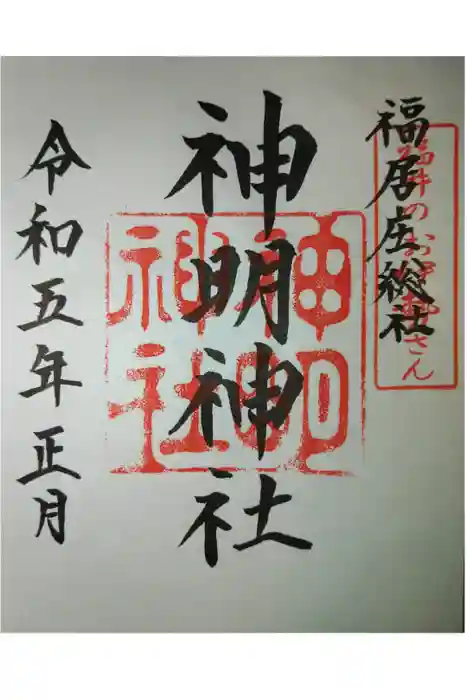 福居庄総社
福井のお さん
神明神社
神明
神社
令和五年正月